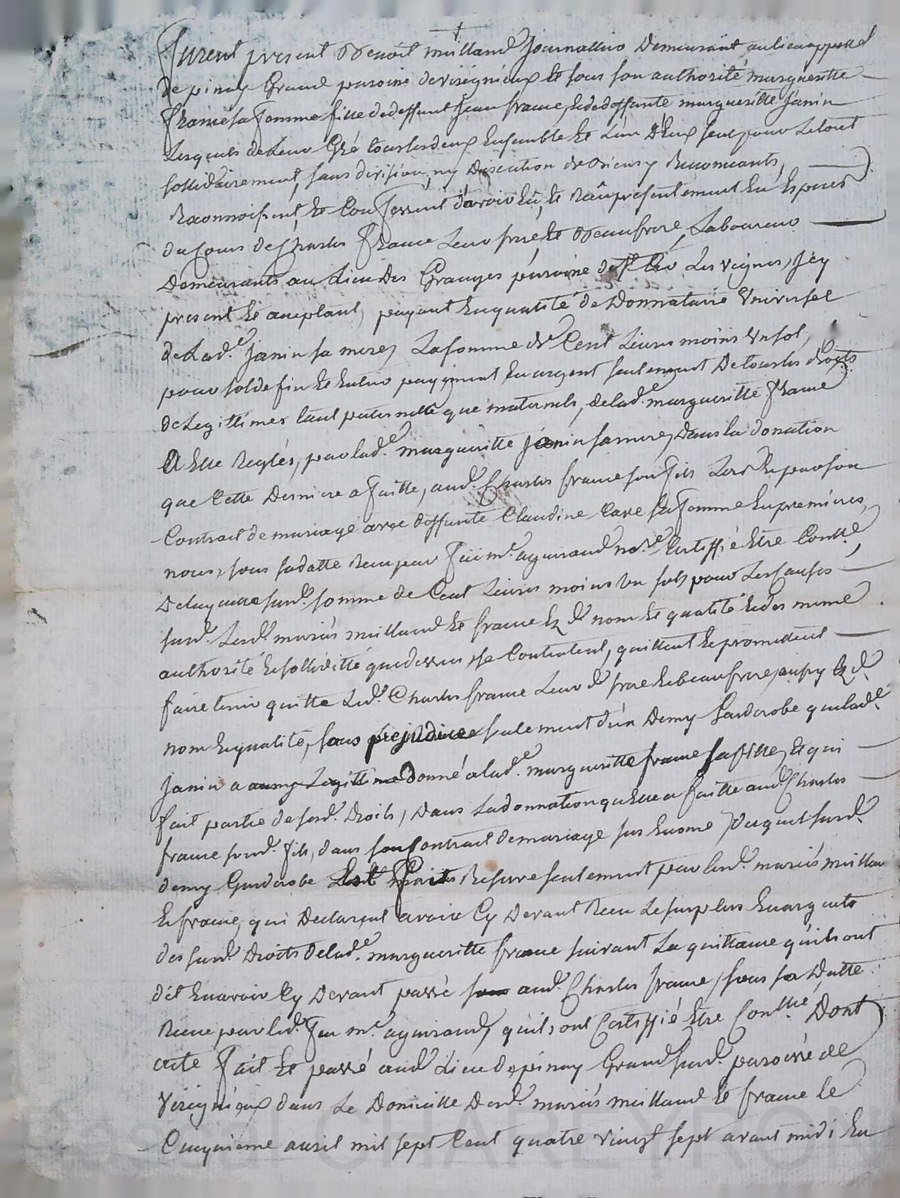 furent present Benoit milliand Journallier Demeurant au lieu appellé
de pinay Grand paroisse de virignieux et sous son authorité margueritte
frame sa femme fille de deffunt Jean frame, et de deffunte margueritte Janin
Lesquels de leur Gré tous les deux Ensemble et L'un D'Eux seul pour Letout
sollidairement, sans division, ny Discution de Biens y Renonceants,
Reconnoissent, et Confessent d'avoir Eû, et Reçu présentement En Espèces
du Cours de Charles frame Leur frère et Beaufrere, Laboureur
Demeurants au Lieu Des Granges paroisse de Les vignes, Icy
present et aceptant, payant En qualité de Donnataire Universel
de Lad.e Janin sa mere, La somme de Cent Livres moins un sol,
pour solde fin et Entier payement En argent seulement De tous les droits
de Legittimes tant paternelle que maternels, de lad.e margueritte frame
A Elle Reglés, par lad.e margueritte Janin sa mere, Dans la donation
que Cette Derniere a faitte, aud. Charles frame son fils Lors Et par son
Contrat de mariage avec deffunte Claudine sa femme En premieres
nous, sous sa datte Reçu par feu m.e aguiraud no.re Certiffié Etre Contlé
De laquelle sus.d. somme de Cent Livres moins un sols pour Les Causes
susd. Lesd. mariés milliand et frame Ez d. nom et qualité Et de meme
authorité Et sollidité que dessus, se Contentent, quittent Et promettent
faire tenir quitte Led. Charles frame Leur d. frere Et beaufrere, aussy Ez d.
nom Et qualité, sans préjudice seulement d'un Demy Garderobe que lad.e
Janin a Legittime donné a lad.e margueritte frame sa fille, Et qui
fait partie de sesd. Droits, Dans La donnation quelle a faitte aud. Charles
frame sond. fils, dans son Contrat de mariage sus Enoncé, duquel susd.
demy Garderobe Est fait Reserve seulement par lesd. mariés milliand
Et frame, qui Declarent avoir Cy Devant Reçu Le surplus En argents
des susd. Droits de lad.e margueritte frame suivant La quittance qu'ils ont
dit En avoir Cy Devant passé aud. Charles frame, sous sa Datte
Reçue par led. feu m.e aguiraud, qu'ils ont Certiffié Etre Contlée, Dont
acte fait Et passé aud. Lieu de pinay Grand susd. paroisse de
Virignieux dans Le Domicille Desd. mariés milliand Et frame le
Cinquieme avril mil sept Cent quatre vingt sept avant midi En
Pascal CHARLEYRON